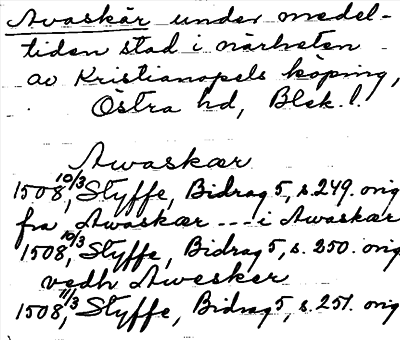 Avaskär under medel-
tiden stad i närheten
av Kristianopels köping,
Östra hd, Blek. l.
Awaskær
1508 10/3, Styffe, Bidrag 5, s. 249. orig
fra Awaskær --- i Awaskær
1508 10/3, Styffe, Bidrag 5, s. 250. orig
vedh Awesker
1508 11/3, Styffe, Bidrag 5, s. 251. orig